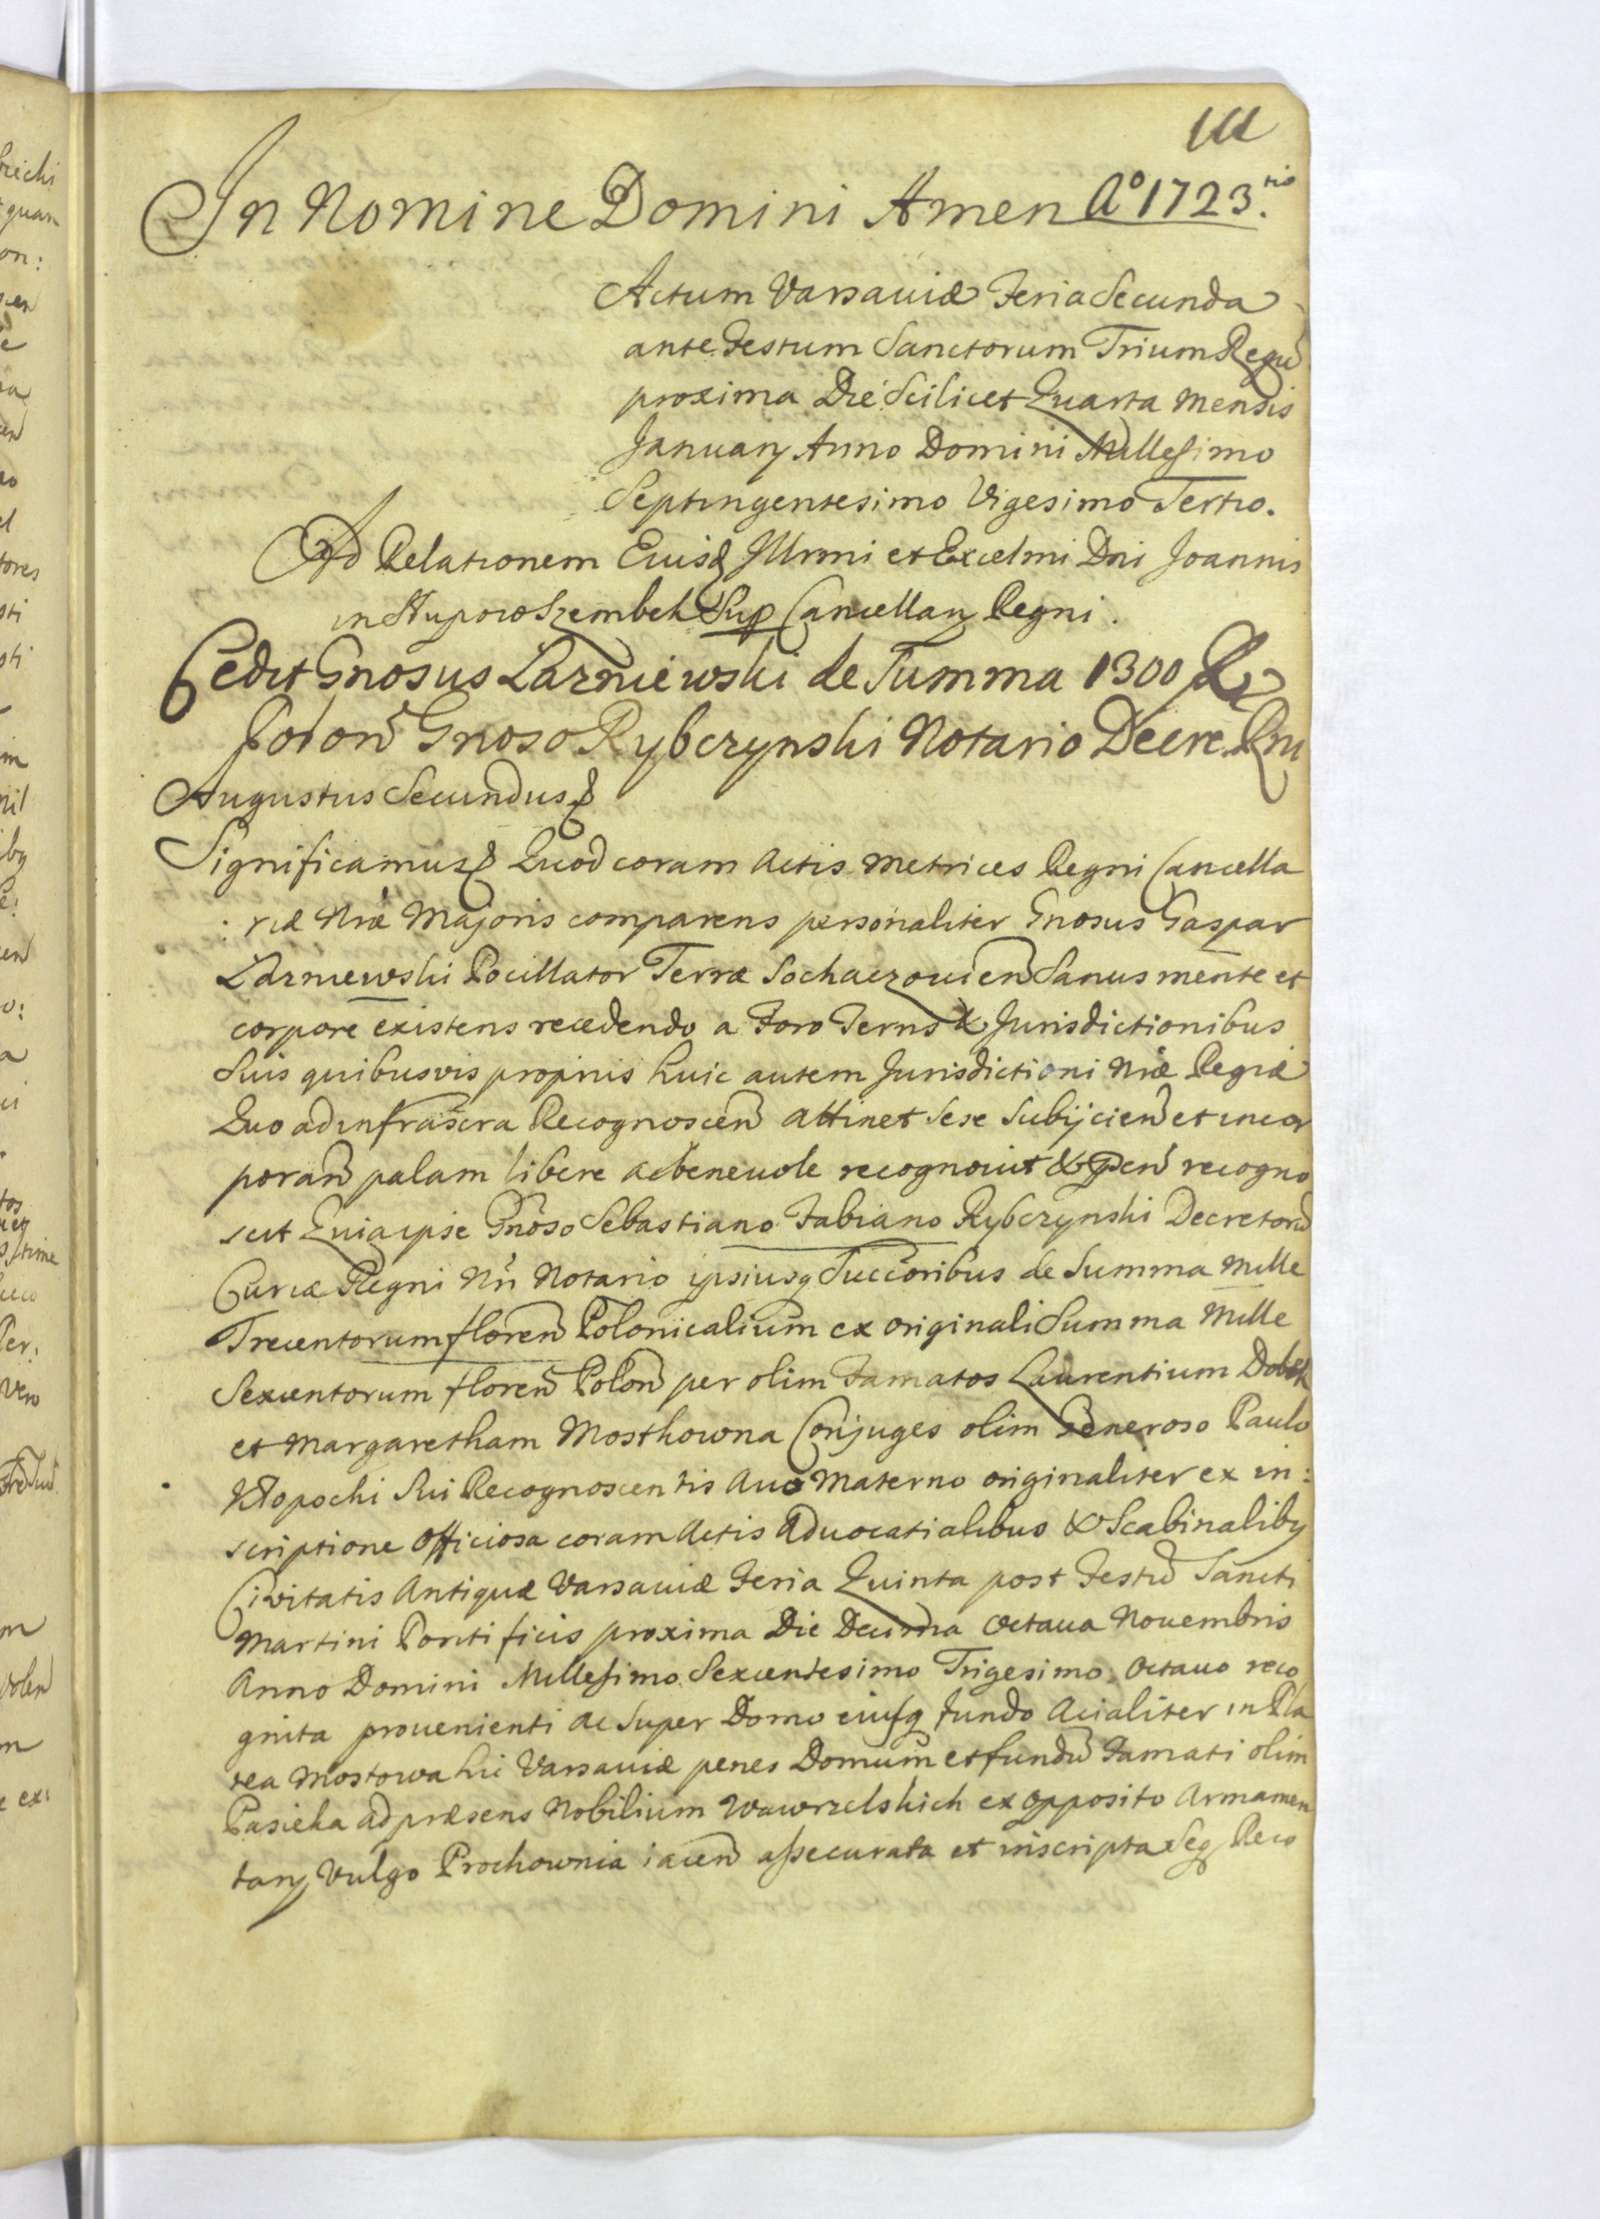 111
In Nomine Domini Amen Aº 1723.tio
Actum Varsaviæ Feria Secunda
ante Festum Sanctorum Trium Regũ
proxima Die Scilicet Quarta Mensis
Januarij Anno Domini Millesimo
Septingentesimo Vigesimo Tertio.
Ad Relationem Eiusd Illrmi et Excelmi Dni Joannis
in Słupow Szembek Sup Cancellarij Regni.
Cedit Gnosus Łazniewski de Summa 1300 fl
Polon Gnoso Rybczynski Notario Decre. Rni
Augustus Secundus
Significamus Quod coram Actis Metrices Regni Cancella
: riæ Nræ Majoris comparens personaliter Gnosus Gaspar
Łazniewski Pocillator Terræ Sochaczovien Sanus mente et
corpore existens recedendo a Foro Terris & Jurisdictionibus
Suis quibusvis proprijs huic autem Jurisdictioni Nræ Regiæ
Quo ad infrascra Recognoscen attinet Sese Subijcien et incor
poran palam libere ac benevole recognovit & p̃cen recogno
scit Quia ipse Gnoso Sebastiano Fabiano Rybczynski Decretorũ
Curiæ Regni Nri Notario ipsiusq Succoribus de Summa Mille
Trecentorum floren Polonicalium ex originali Summa Mille
Sexcentorum floren Polon per olim Famatos Laurentium Dobek
et Margaretham Mostkowna Conjuges olim Generoso Paulo
Kłopocki Sui Recognoscentis Avo Materno originaliter ex in:
scriptione officiosa coram Actis Advocatialibus & Scabinalibq
Civitatis Antiquæ Varsaviæ Feria Quinta post Festũ Sancti
Martini Pontificis proxima Die Decima Octava Novembris
Anno Domini Millesimo Sexcentesimo Trigesimo Octavo reco
gnita provenienti ac Super Domo eiusq fundo Acialiter in Pla
tea Mostowa hic Varsaviæ penes Domum et fundũ Famati olim
Pasieka ad præsens Nobilium Wawrzelskich ex opposito Armamen
tarij vulgo Prochownia iacen assecurata et inscripta Seq Reco